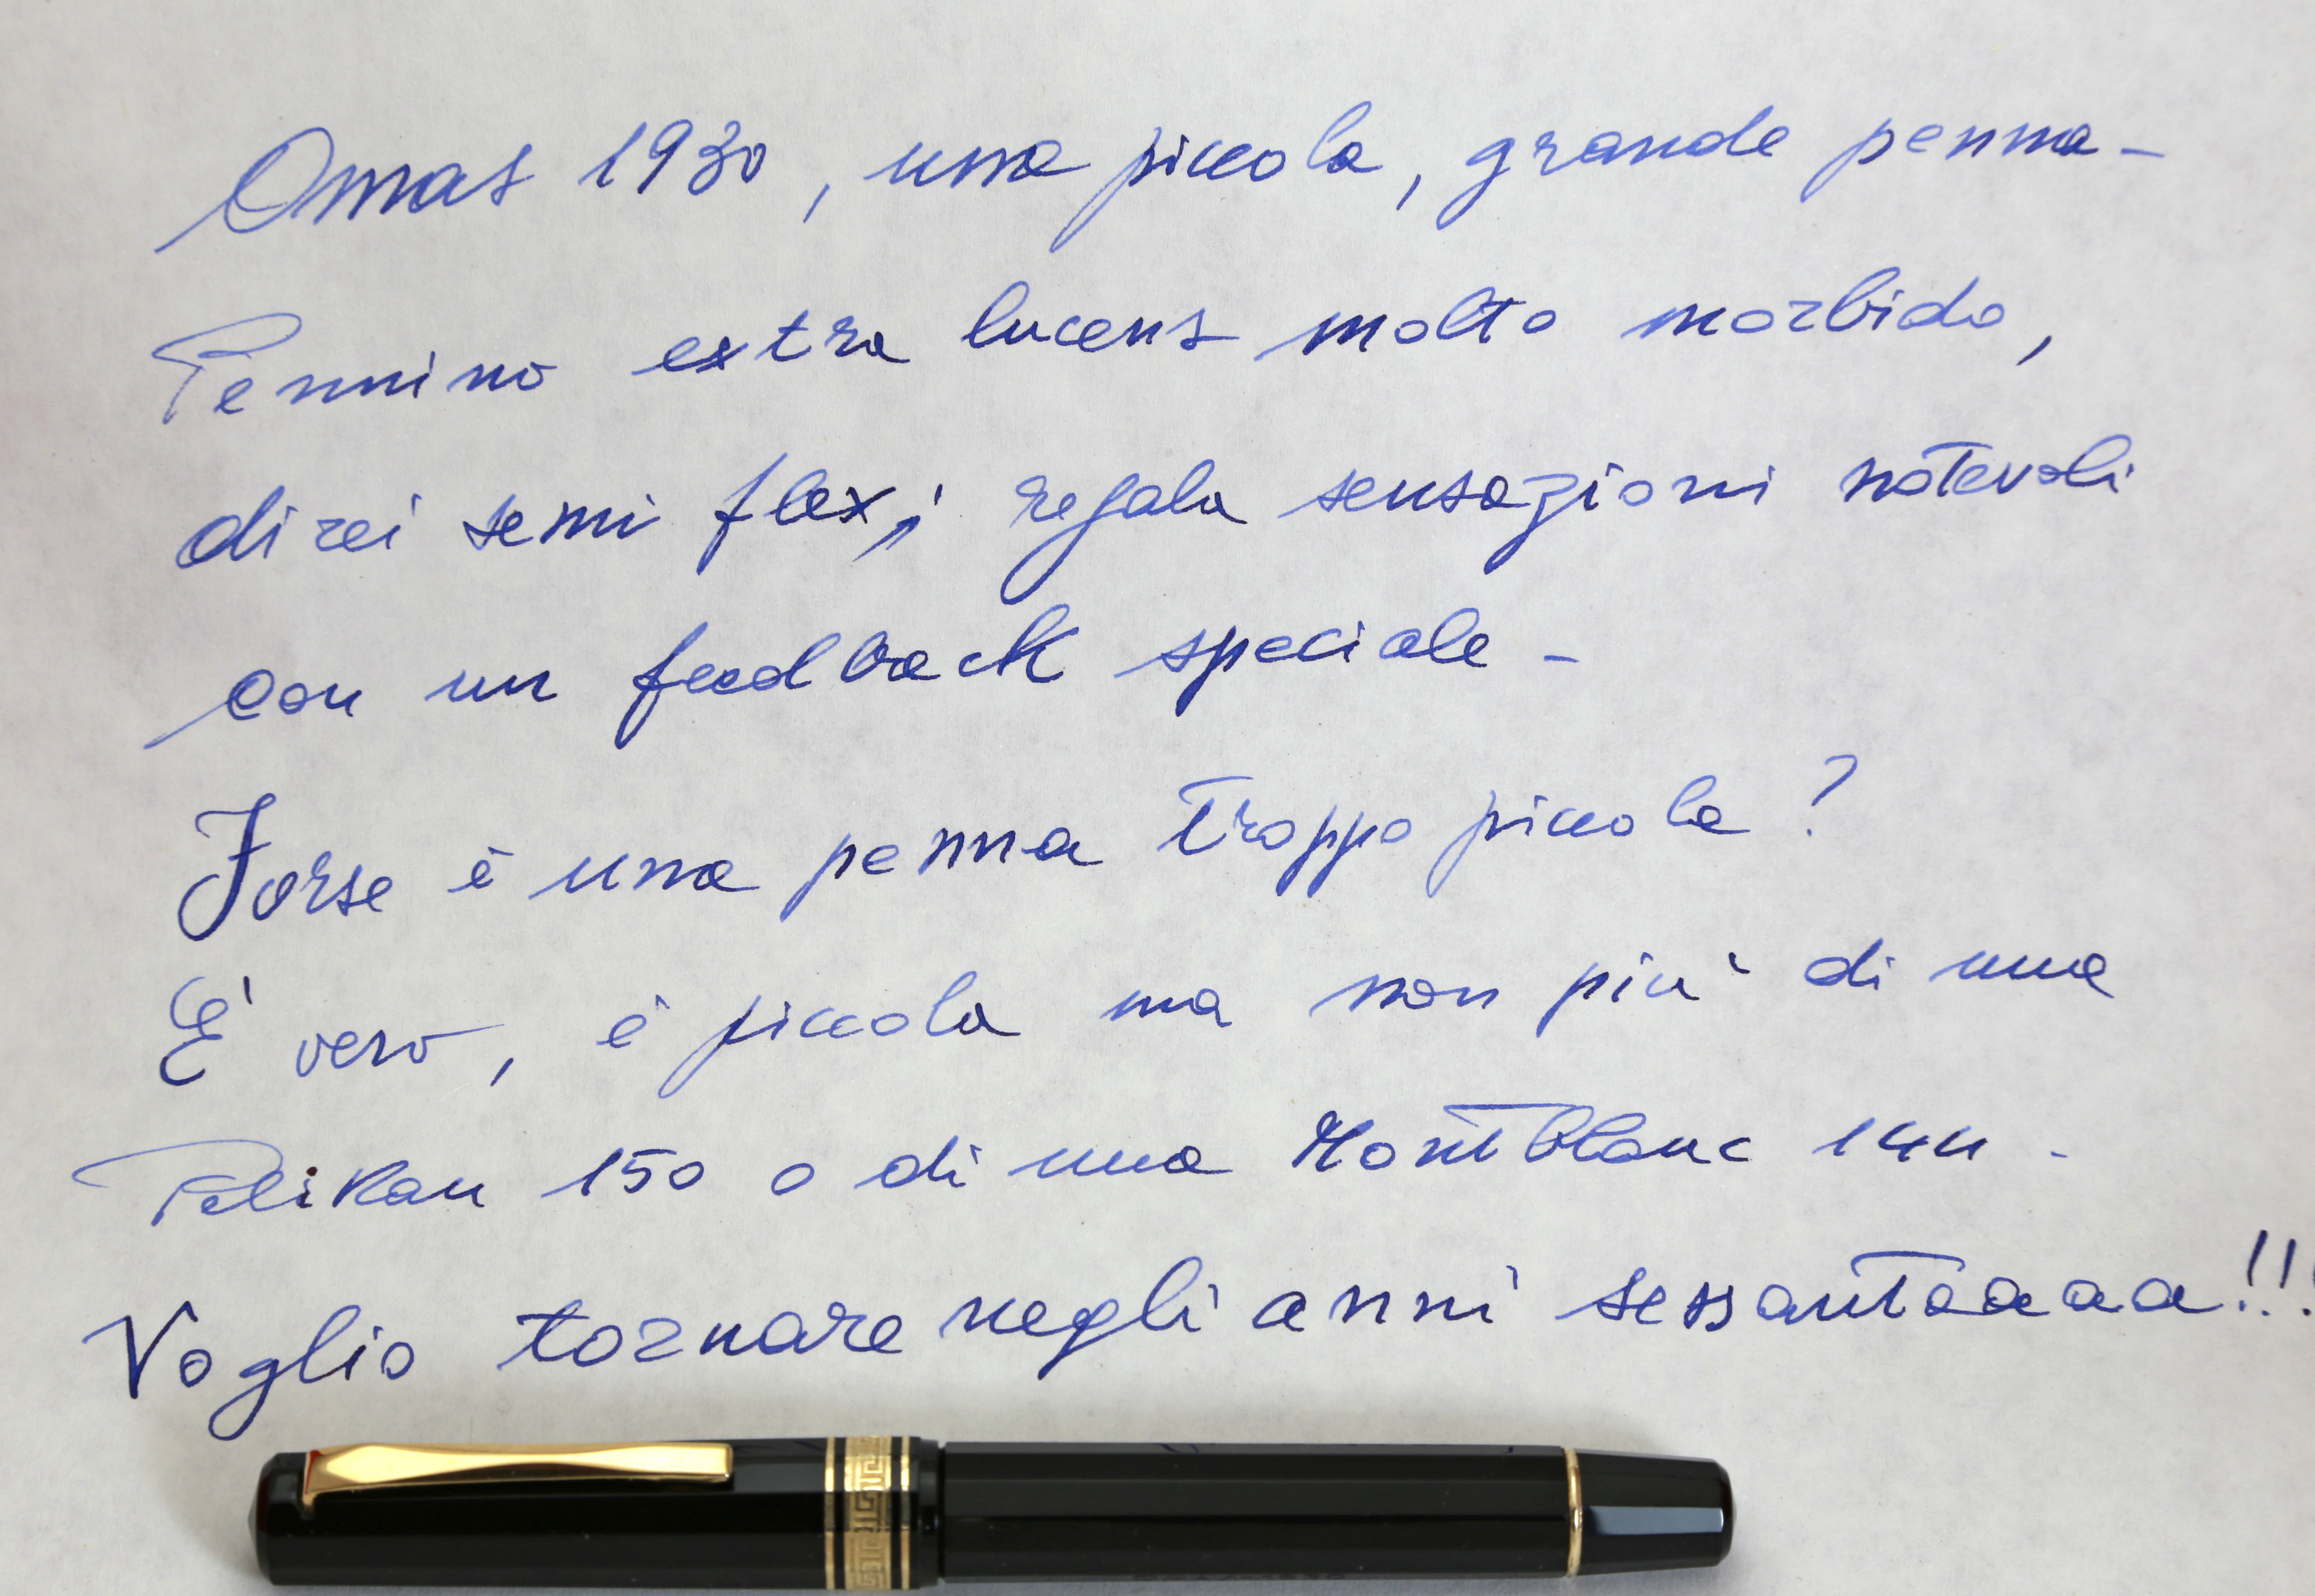 Omas 1930, una piccola, grande penna -
Pennino extra lucens molto morbido,
direi semi flex, regala sensazioni notevoli
con un feedback speciale -
Forse è una penna troppo piccola ?
E' vero, è piccola ma non più di una
Pelikan 150 o di una MontBlanc 144 -
Voglio tornare negli anni sessantaaaa!!!